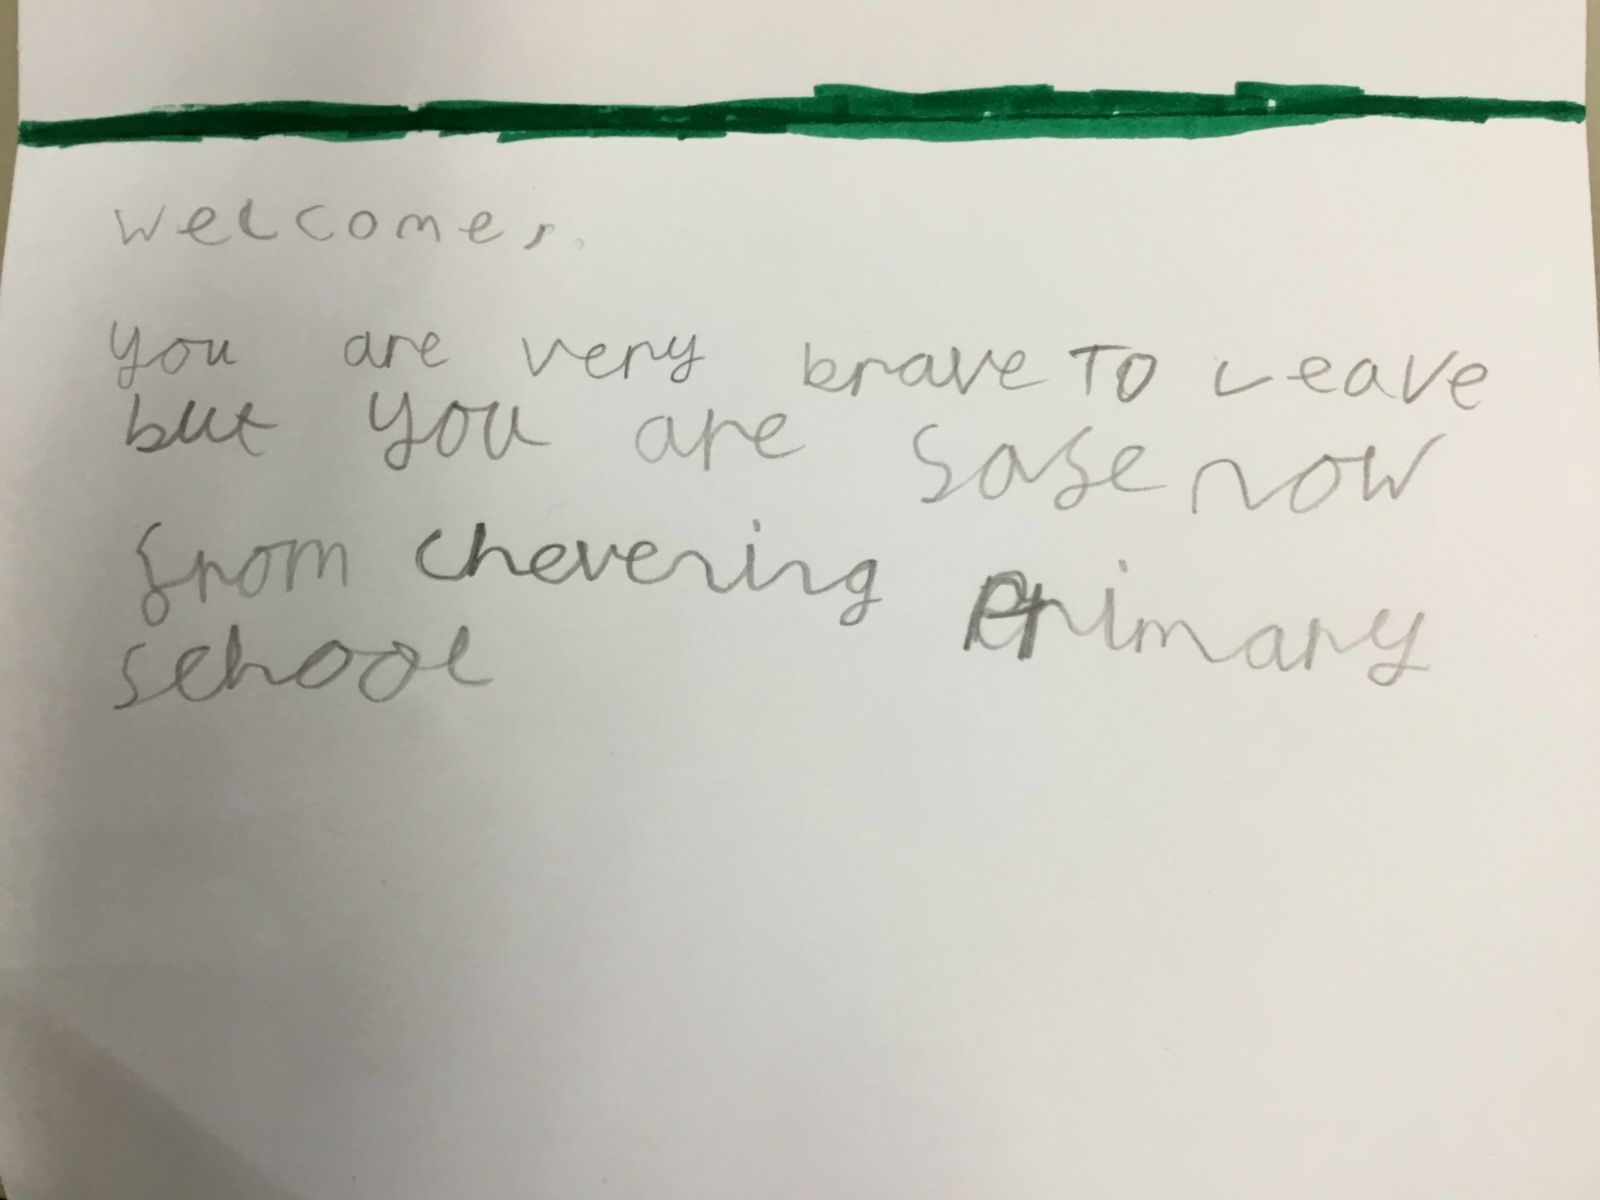 welcome,
you are very brave To Leave
but you are safe now
from chevening Primary
school